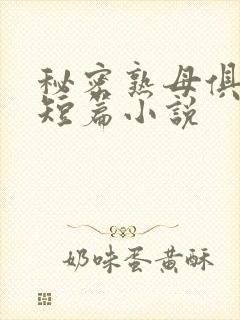 秘密熟母俱
短篇小說
奶味蛋黄酥